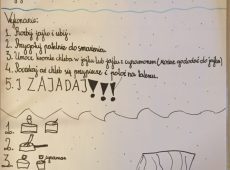 Wykonanie:
1. Rozbij jajko i ubij.
2. Przygotuj patelnie do smażenia.
3. Umocz kromke chleba w jajku lub jajku z cynamonem (można dodać do jajka)
4. Poczekaj aż chleb się przypiecze i połóż na talerzu.
5. I ZAJADAJ!!!
1.
2.
3.
cynamon